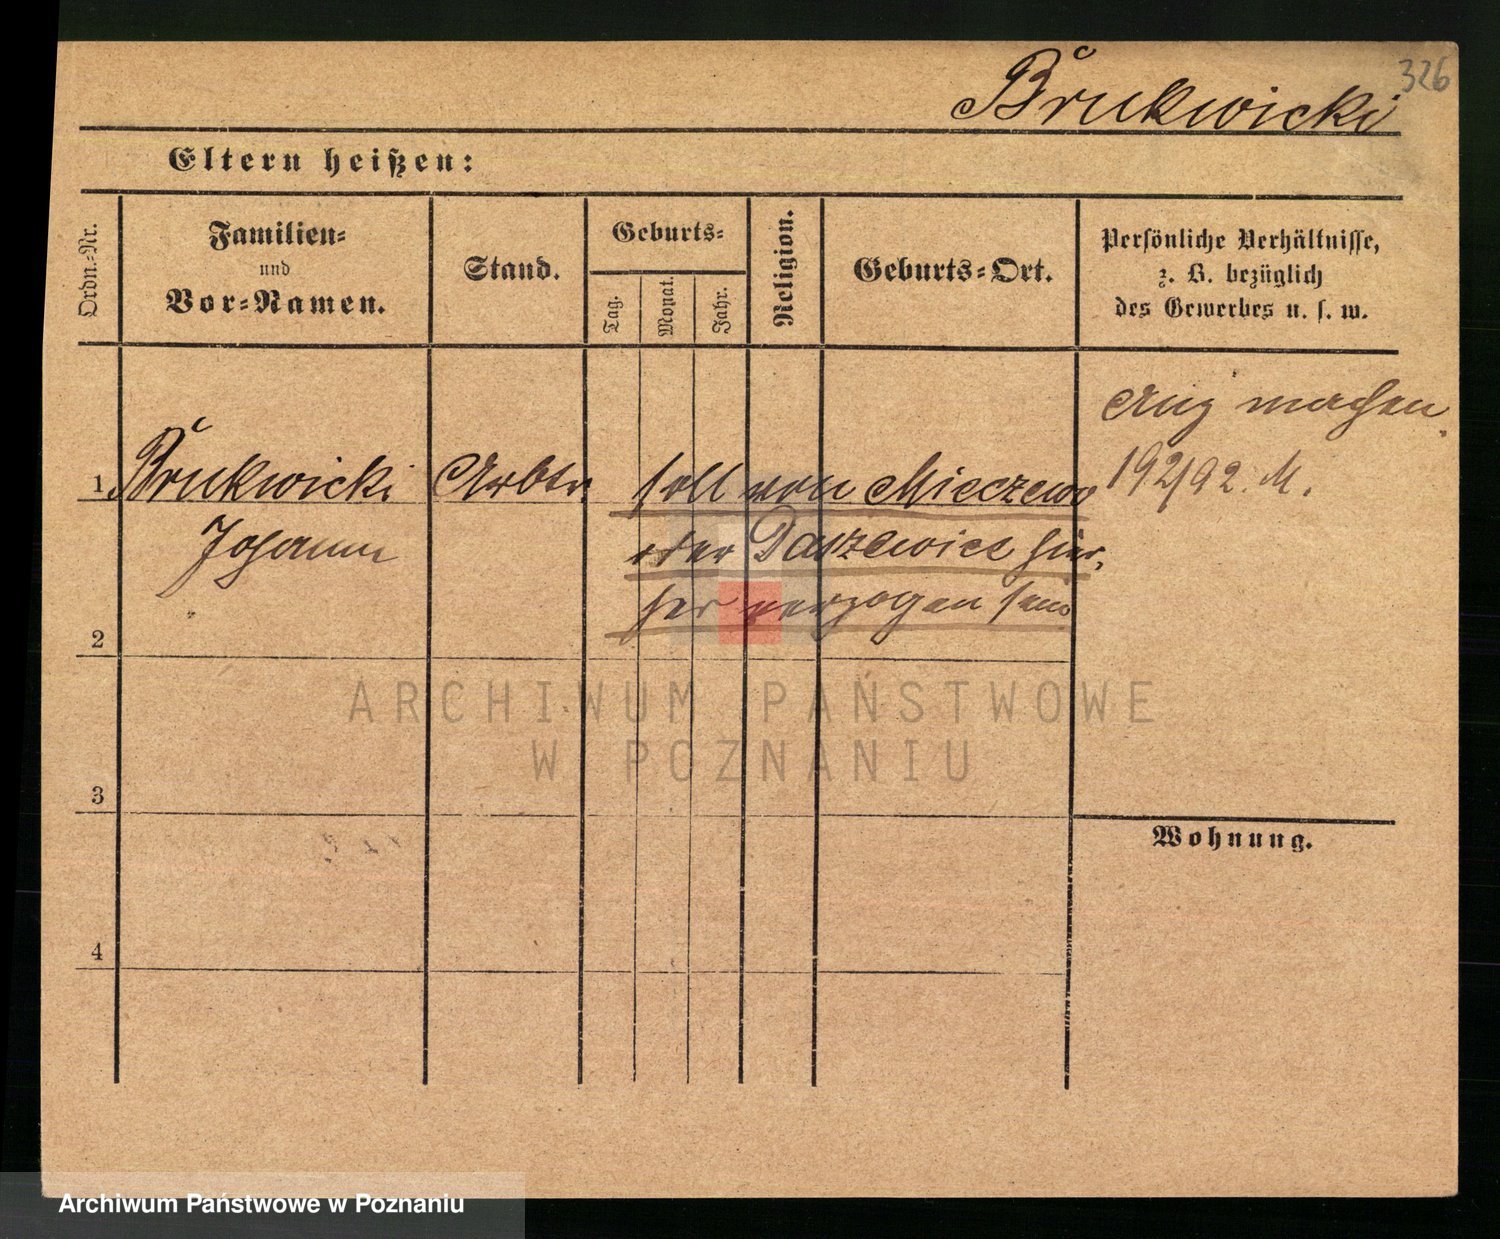 326
Brukwicki
Eltern heißen:
Ordn.-Nr.
Familien-
und
Vor-Namen.
Stand.
Geburts-
Tag.
Monat.
Jahr.
Religion.
Geburts-Ort.
Persönliche Verhältnisse,
z. B. bezüglich
des Gewerbes u. s. w.
1 Brukwicki Arbtr. soll von Mieczewo
Johann oder Daszewice hier-
her verzogen sein
Anz machen.
192/92. M.
2
3
4
Wohnung.
ARCHIWUM PAŃSTWOWE
W POZNANIU
Archiwum Państwowe w Poznaniu